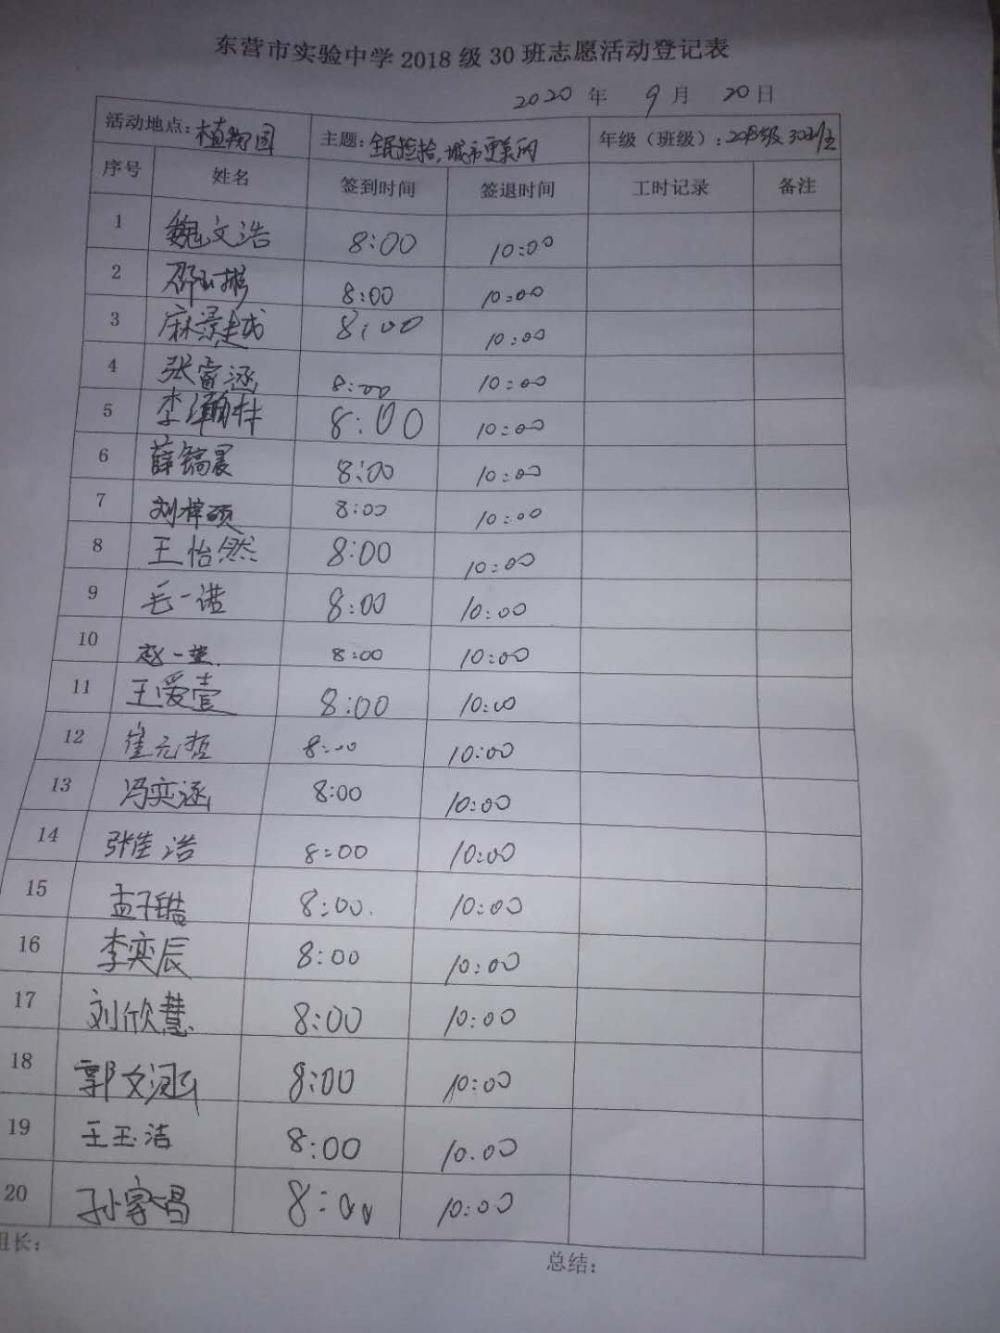 东营市实验中学2018级30班志愿活动登记表
2020年 9月 20日
活动地点：植物园 主题：全民捡拾，城市更美丽 年级（班级）：2018级30班
序号 姓名 签到时间 签退时间 工时记录 备注
1 魏文浩 8:00 10:00
2 邵玉彬 8:00 10:00
3 麻景越 8:00 10:00
4 张睿涵 8:00 10:00
5 李瀚梓 8:00 10:00
6 薛镐晨 8:00 10:00
7 刘梓硕 8:00 10:00
8 王怡然 8:00 10:00
9 毛一诺 8:00 10:00
10 赵一 8:00 10:00
11 王爱萱 8:00 10:00
12 崔元哲 8:00 10:00
13 冯奕涵 8:00 10:00
14 张佳浩 8:00 10:00
15 孟子皓 8:00 10:00
16 李奕辰 8:00 10:00
17 刘欣慧 8:00 10:00
18 郭文涵 8:00 10:00
19 王玉洁 8:00 10:00
20 孙家昌 8:00 10:00
组长： 总结：